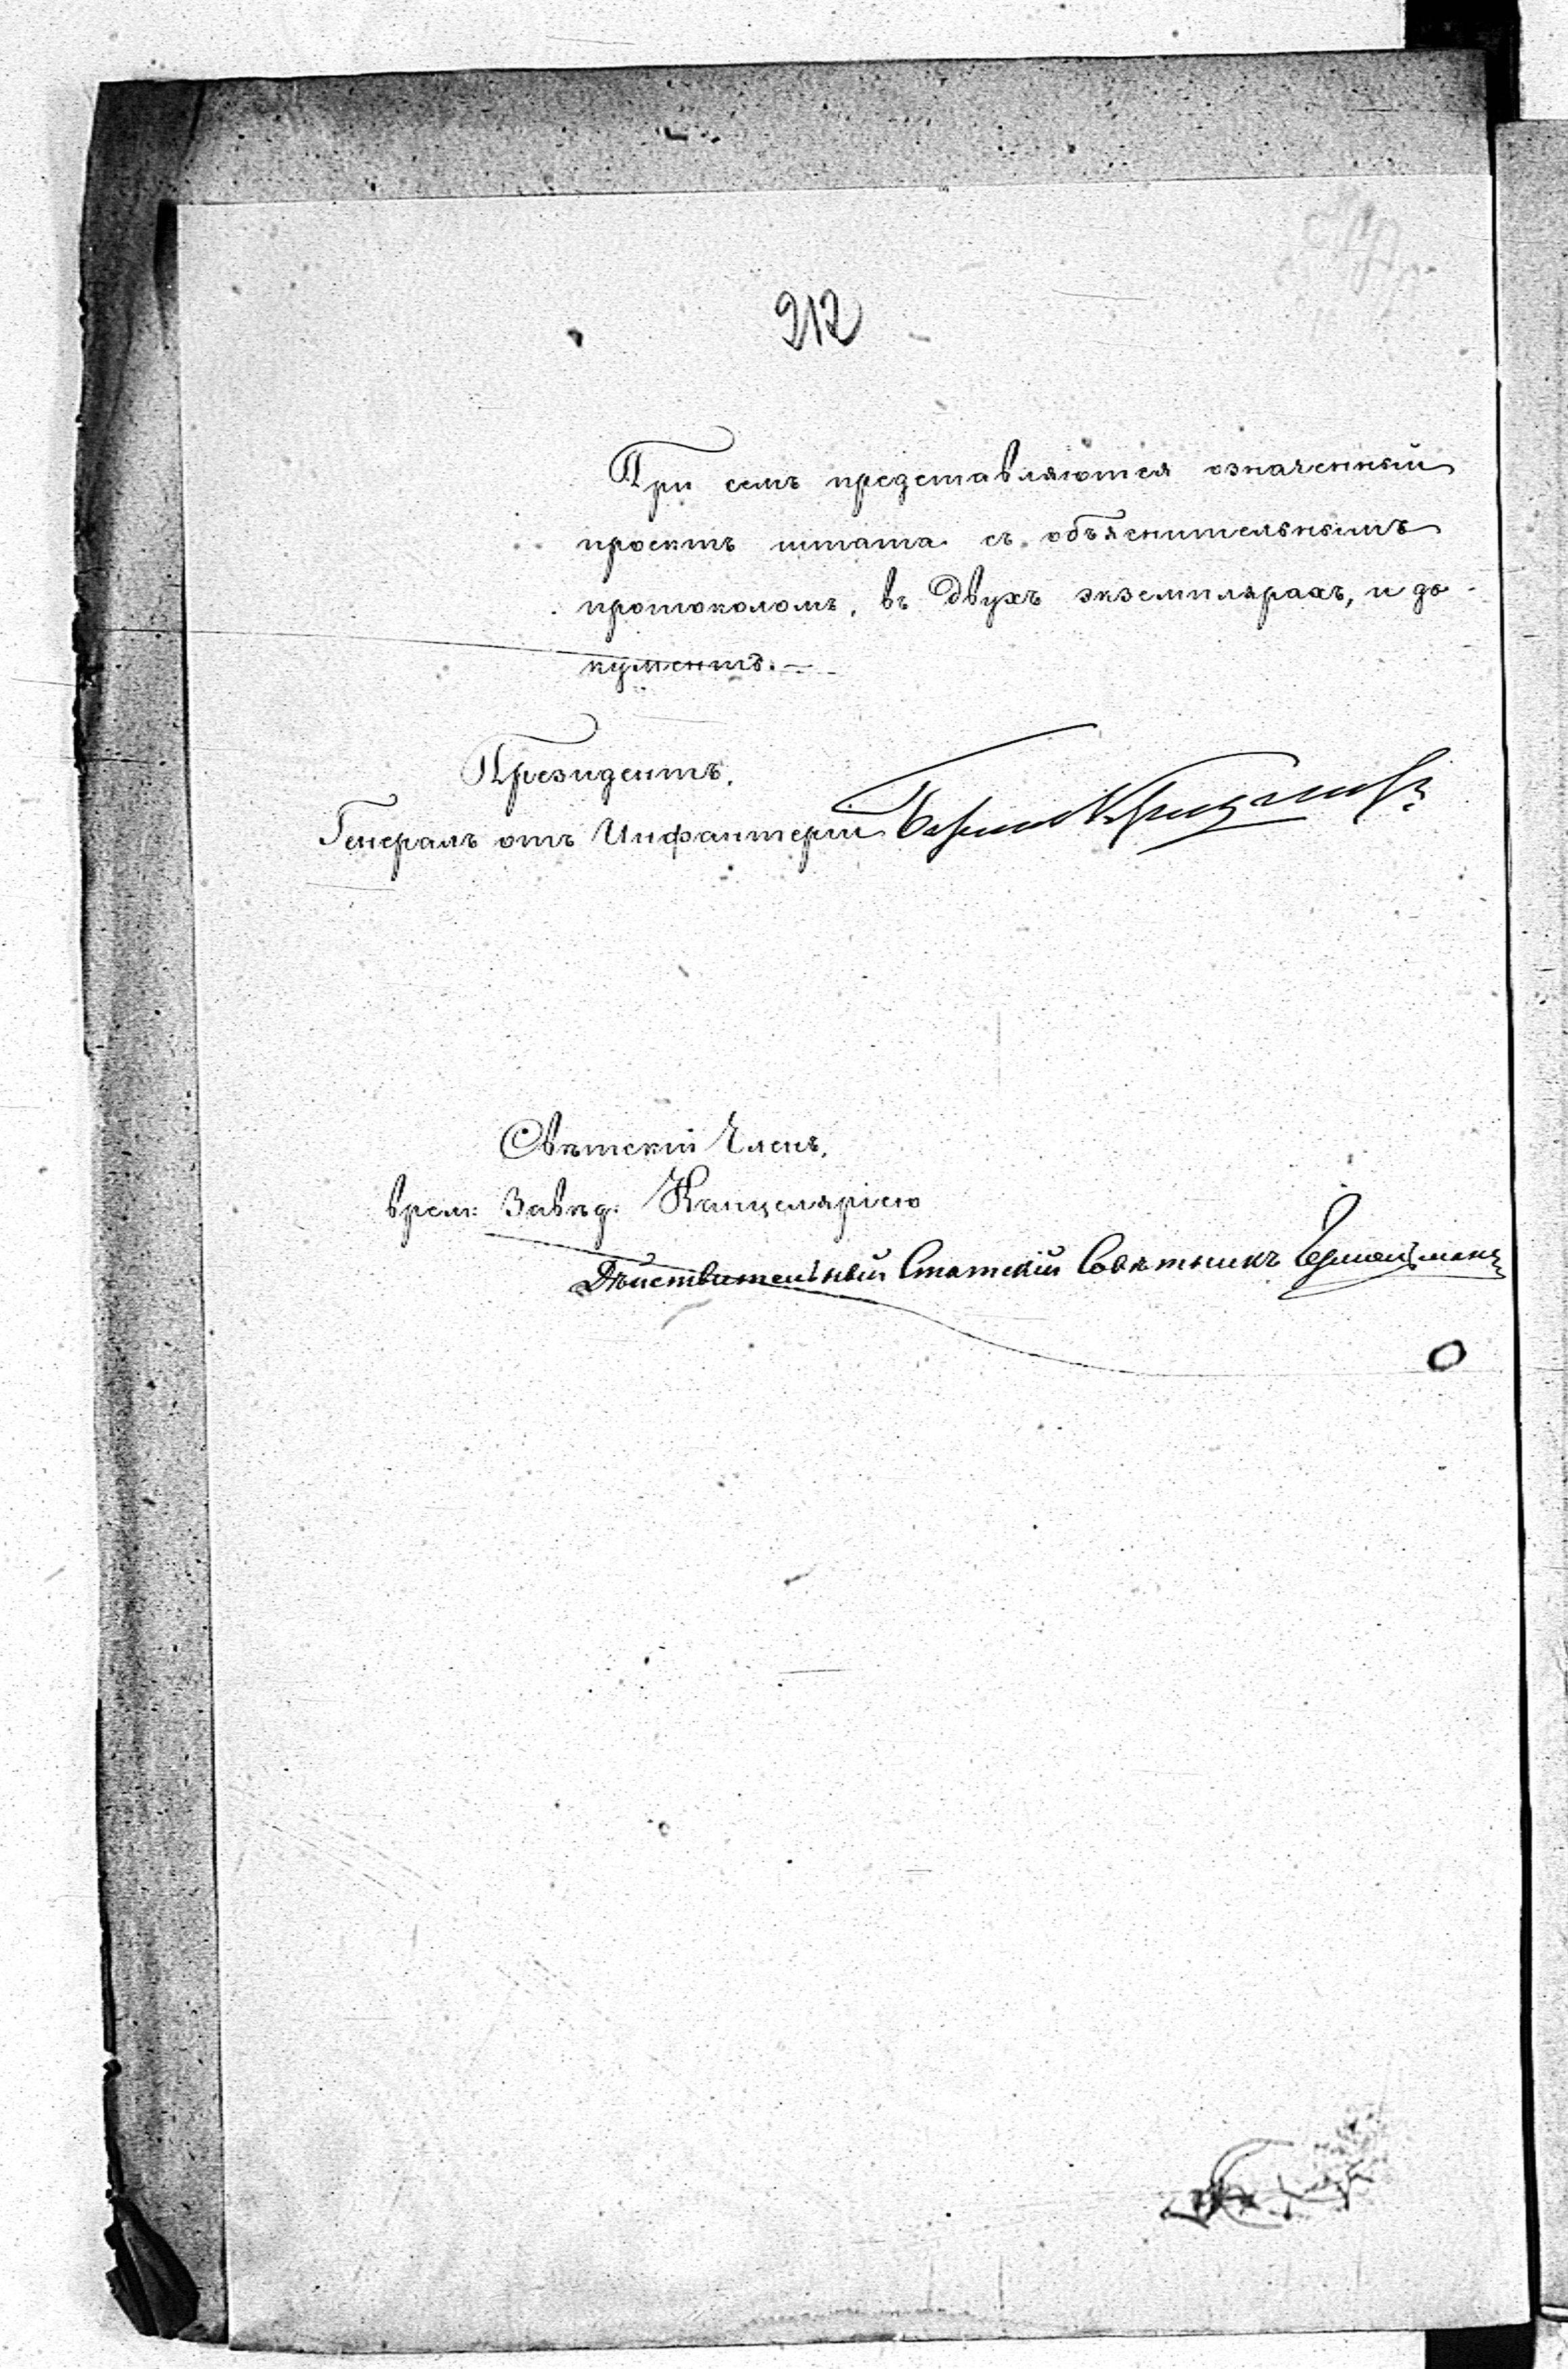 212
При семъ представляются означенный
проектъ штата съ объяснительнымъ
протоколомъ, въ двухъ экземплярахъ, и до-
кументъ.—
Президентъ,
Генералъ отъ Инфантеріи Баронъ
Свѣтскій Членъ,
врем: Завѣд: Канцеляріею
Дѣйствительный Статскій Совѣтникъ